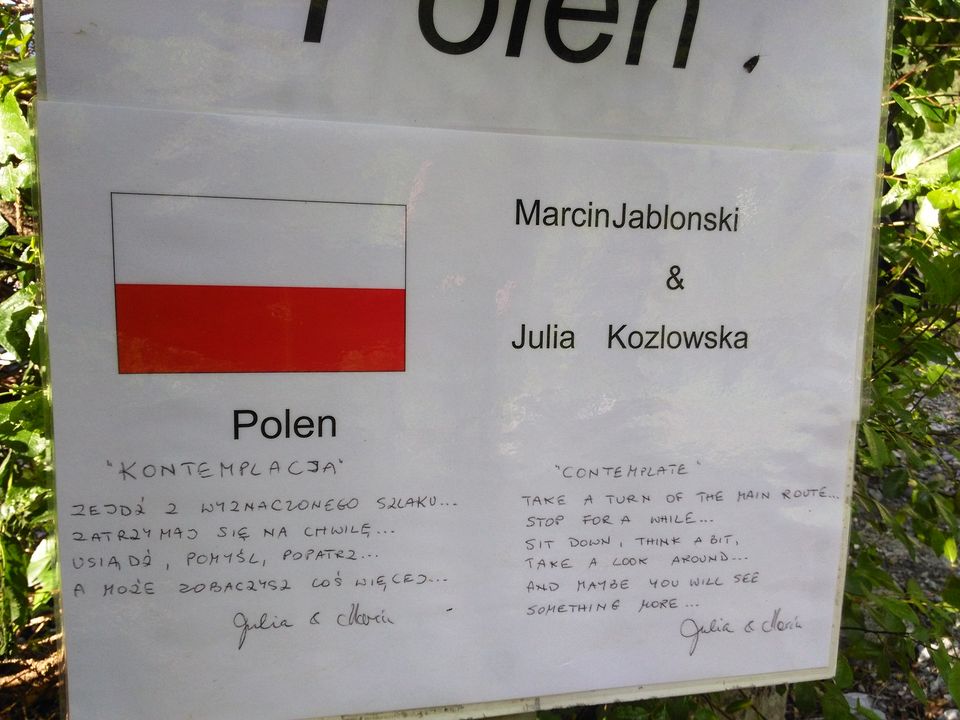 Polen
MarcinJablonski
&
Julia Kozlowska
Polen
"KONTEMPLACJA"
ZEJDŹ Z WYZNACZONEGO SZLAKU...
ZATRZYMAJ SIĘ NA CHWILĘ...
USIĄDŹ, POMYŚL, POPATRZ...
A MOŻE ZOBACZYSZ COŚ WIĘCEJ...
Julia & Marcin
"CONTEMPLATE"
TAKE A TURN OF THE MAIN ROUTE...
STOP FOR A WHILE...
SIT DOWN, THINK A BIT,
TAKE A LOOK AROUND...
AND MAYBE YOU WILL SEE
SOMETHING MORE...
Julia & Marcin